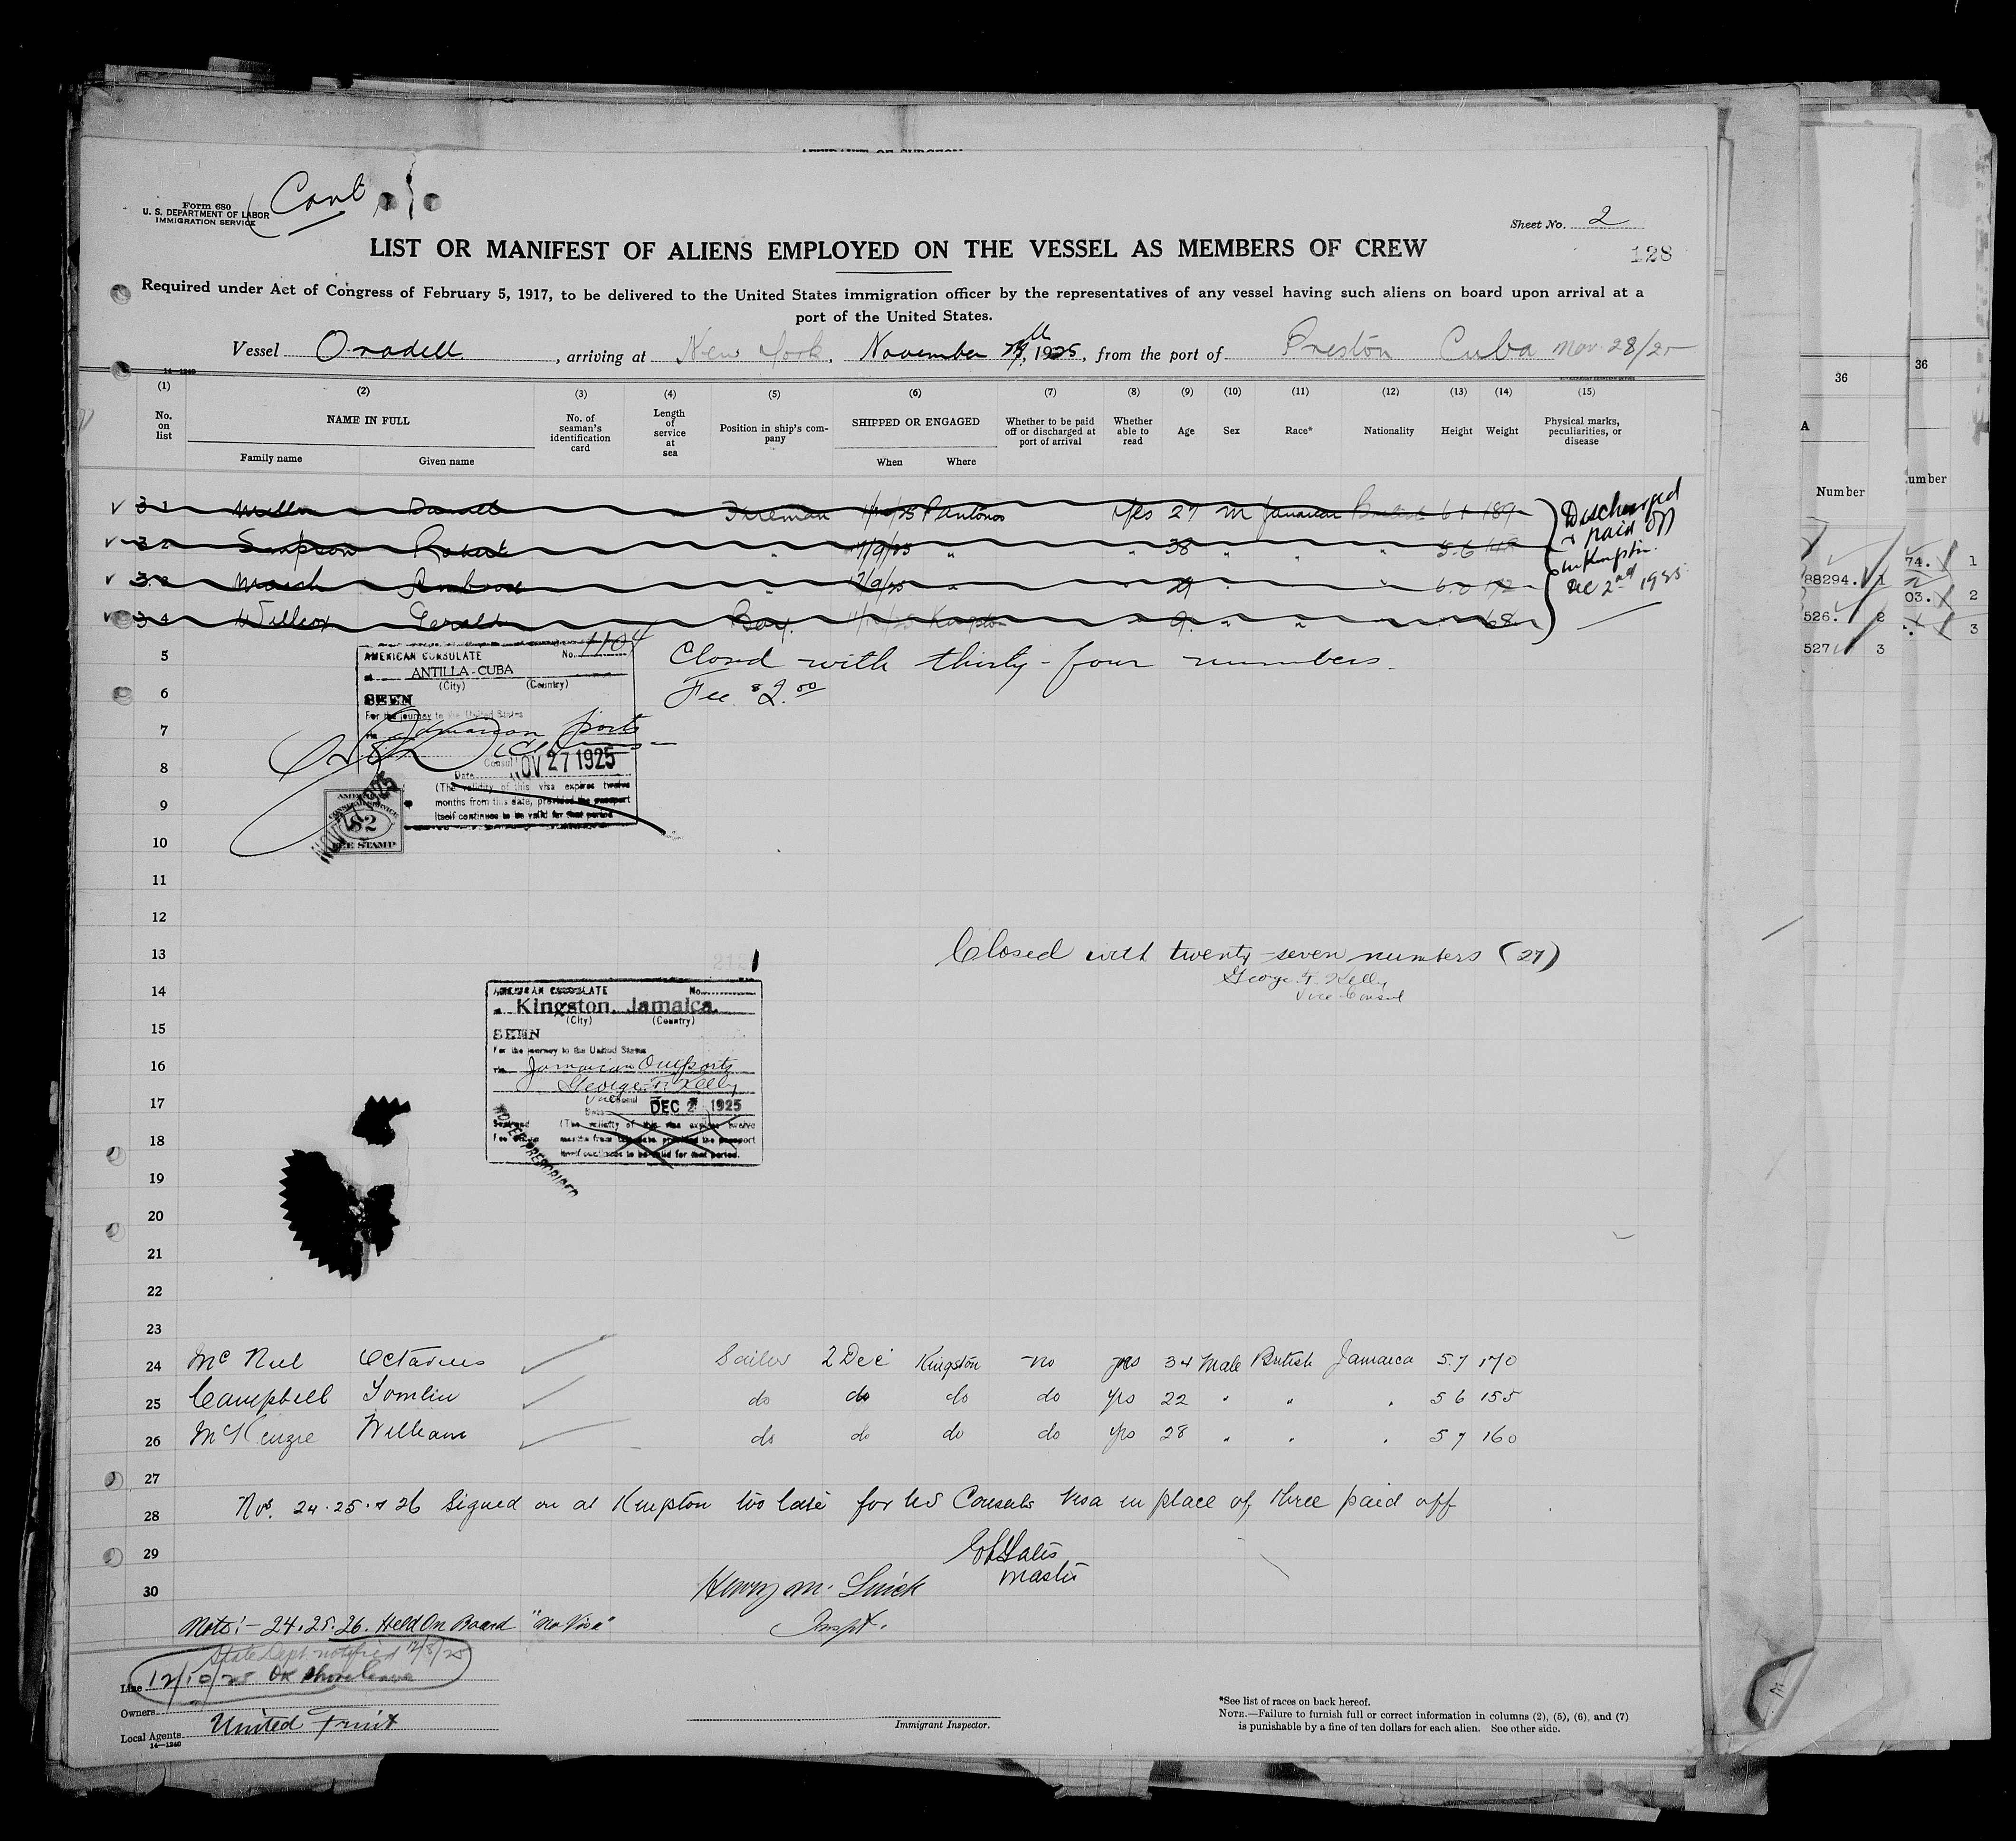 AFFIDAVIT OF SURGEON
Cont
Form 680
U. S. DEPARTMENT OF LABOR
IMMIGRATION SERVICE
Sheet No. 2
LIST OR MANIFEST OF ALIENS EMPLOYED ON THE VESSEL AS MEMBERS OF CREW
128
Required under Act of Congress of February 5, 1917, to be delivered to the United States immigration officer by the representatives of any vessel having such aliens on board upon arrival at a
port of the United States.
Vessel Oradell, arriving at New York, November 1925, from the port of Preston Cuba Nov. 28/25
14-1240
(1) (2) (3) (4) (5) (6) (7) (8) (9) (10) (11) (12) (13) (14) (15)
No. on list
NAME IN FULL
Family name Given name
No. of seaman's identification card
Length of service at sea
Position in ship's company
SHIPPED OR ENGAGED
When Where
Whether to be paid off or discharged at port of arrival
Whether able to read
Age Sex Race* Nationality Height Weight
Physical marks, peculiarities, or disease
31 Daniel Fireman P Antonio Yes 27 m Jamaican British 6 1 189
Simpson Robert 38 5.6
Ambrose 29 6.0 172
34 Willcox Gerald Boy. Kingston 68
Discharged
& paid off
in Kingston.
Dec 2nd 1925
5 Closed with thirty-four numbers
AMERICAN CONSULATE No. 1104
ANTILLA-CUBA
(City) (Country)
6 Fee $2.00
SEEN
For the journey to the United States
7 via Jamaican ports
8 Consul
Date NOV 27 1925
(The validity of this visa expires twelve
9 months from this date, provided the passport
itself continues to be valid for that period
NOV 27 1925
$2
10 FEE STAMP
11
12
13 Closed with twenty-seven numbers (27)
George F. Kelly
Vice Consul
14 AMERICAN CONSULATE No.
Kingston, Jamaica.
(City) (Country)
15 SEEN
For the journey to the United States
16 via Jamaican Outports
George F. Kelly
17 Vice Consul
Date DEC 2 1925
(The validity of this visa expires twelve
18 months from this date, provided the passport
itself continues to be valid for that period.
NO FEE PRESCRIBED
19
20
21
22
23
24 McNeil Octavius Sailor 2 Dec Kingston no yes 34 Male British Jamaica 5.7 170
25 Campbell Tomlin do do do do yes 22 " " " 5 6 155
26 McKenzie William do do do do yes 28 " " " 5 7 160
27
28 Nos. 24.25. & 26 Signed on at Kingston too late for US Consuls Visa in place of three paid off
29
Master
30 Henry M.
Inspt.
Note:- 24.25.26. Held On Board "No Visa"
State Dept. notified 12/8/25
Line 12/10/25 OK shore leave
Owners
Local Agents United Fruit
14-1240
Immigrant Inspector.
*See list of races on back hereof.
NOTE.—Failure to furnish full or correct information in columns (2), (5), (6), and (7)
is punishable by a fine of ten dollars for each alien. See other side.
36
A
Number
88294. 1
526. 2
527 3
36
umber
74. 1
03. 2
3